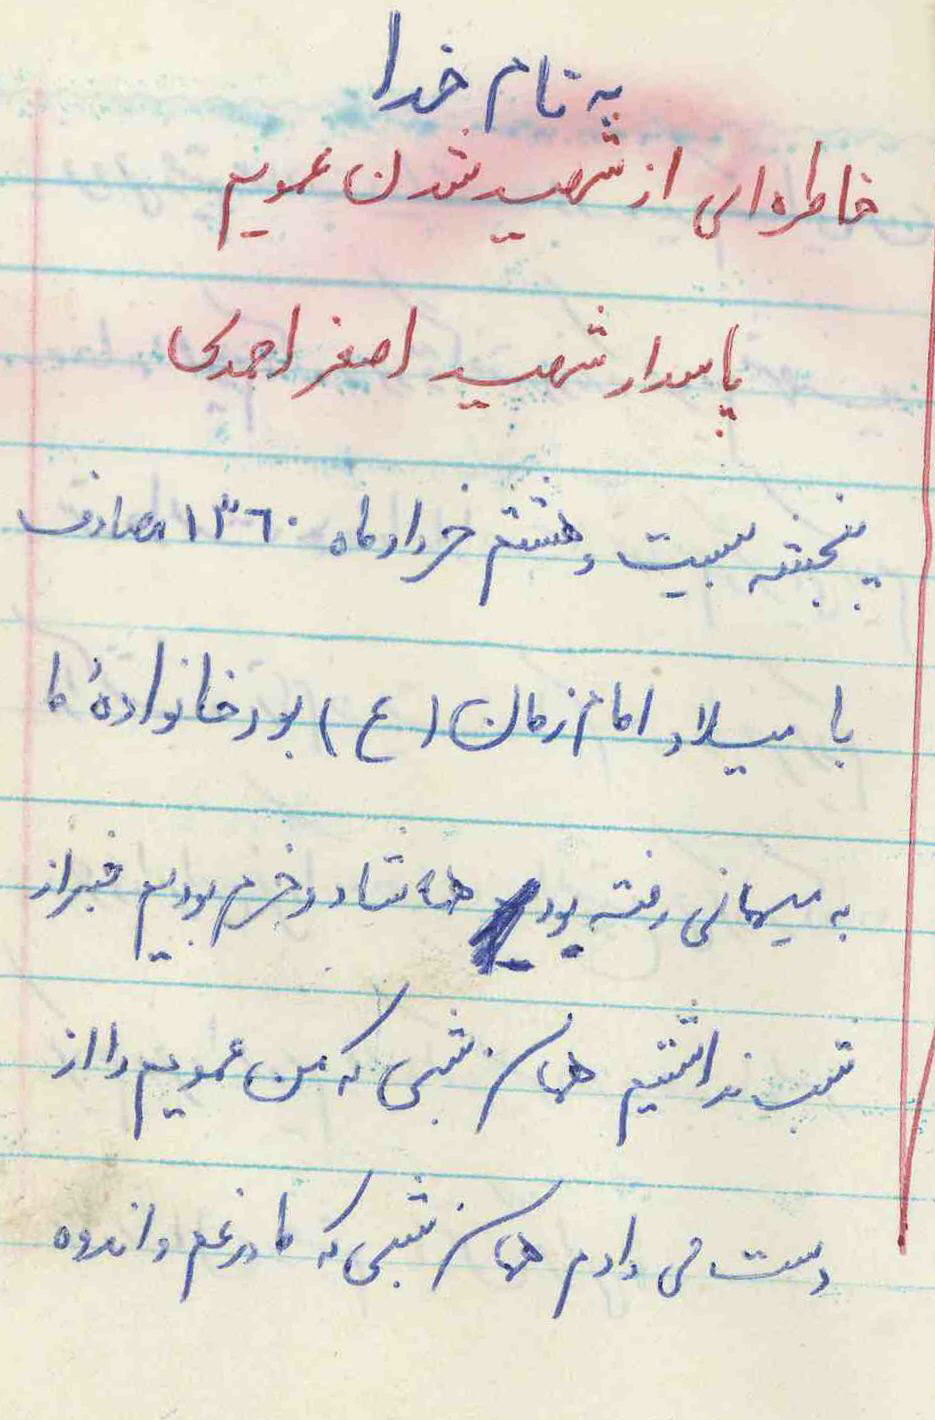 به نام خدا
خاطره‌ای از شهید شدن عمویم
پاسدار شهید اصغر احمدی
پنجشنبه بیست و هشتم خرداد ماه ۱۳۶۰ مصادف
با میلاد امام زمان (ع) بود خانوادهٔ ما
به میهمانی رفته بودیم همه شاد و خرم بودیم خبر از
شب نداشتیم همان شبی که من عمویم را از
دست می دادم همان شبی که ما در غم و اندوه